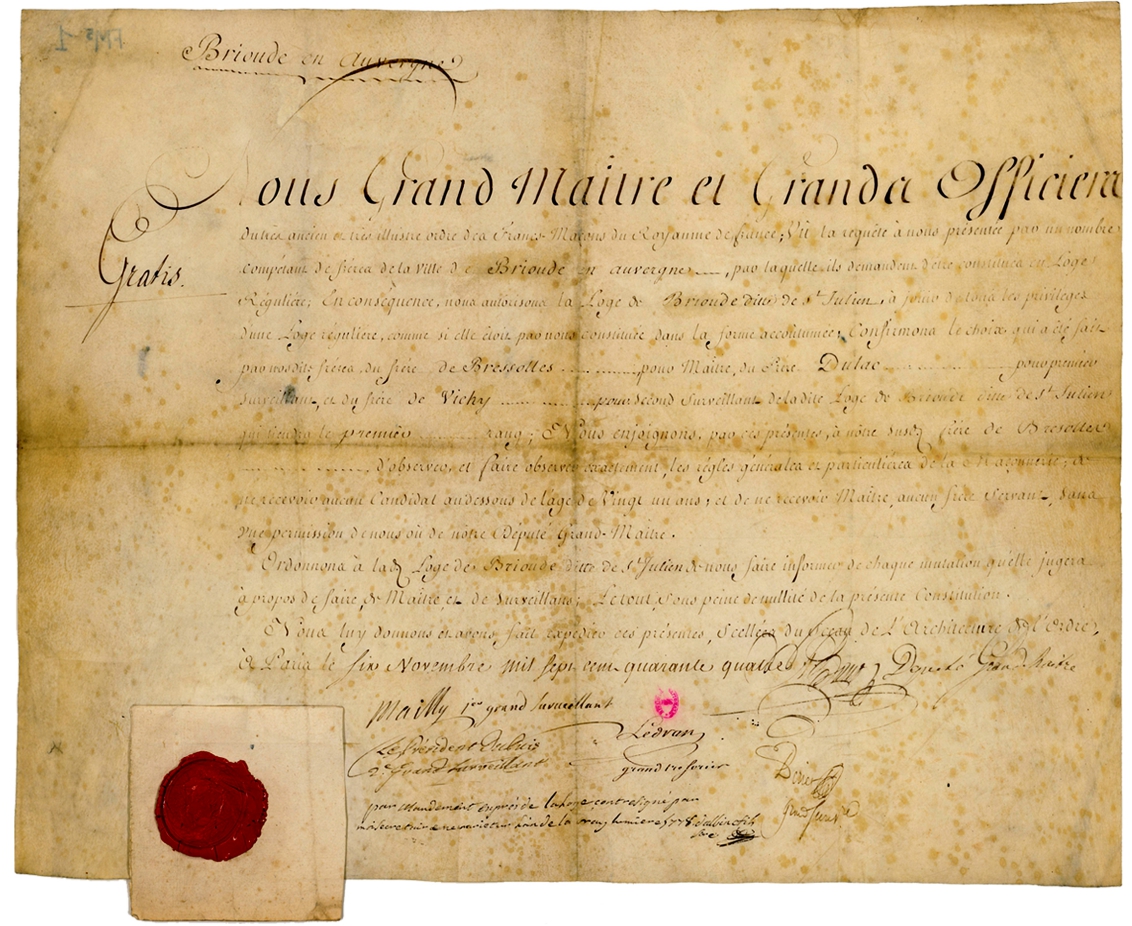 Brioude en auvergne
Nous Grand Maitre et Grands Officiers
Gratis.
du très ancien et très illustre ordre des Francs-Maçons du Royaume de france; Vû la requête à nous présentée par un nombre
compétant de frères de la Ville de Brioude en auvergne, par laquelle ils demandent d'être constitués en Loge
Régulière; En conséquence, nous autorisons la Loge de Brioude ditte de st Julien, à jouir de tous les privilèges
d'une Loge régulière, comme si elle étoit par nous constituée dans la forme accoutumée; Confirmons le choix qui a été fait
par nosdits frères, du frère de Bressolles pour Maître, du Frère Dulac pour premier
Surveillant, et du frère de Vichy pour second Surveillant de ladite Loge de Brioude ditte de st Julien
qui tiendra le premier rang; Nous enjoignons, par ces présentes, à nôtre susd frère de Bresolles
, d'observer, et faire observer exactement, les règles générales et particulières de la Maçonnerie; de
ne recevoir aucun Candidat au dessous de l'age de Vingt un ans; et de ne recevoir Maître, aucun frère Servant, sans
une permission de nous ou de notre Député Grand-Maître.
Ordonnons à lad Loge de Brioude ditte de st Julien de nous faire informer de chaque mutation qu'elle jugera
à propos de faire, de Maître et de Surveillans; Le tout, sous peine de nullité de la présente Constitution.
Nous luy donnons et avons fait expédier ces présentes, Scellées du Sceau de L'Architecture de L'Ordre,
à Paris le six Novembre mil sept cent quarante quatre Grand Maitre
Mailly 1er grand surveillant
Ledran
Le Président Dubuis
2e Grand surveillant
grand tresorier
par mandement exprès de la loge contresigné par